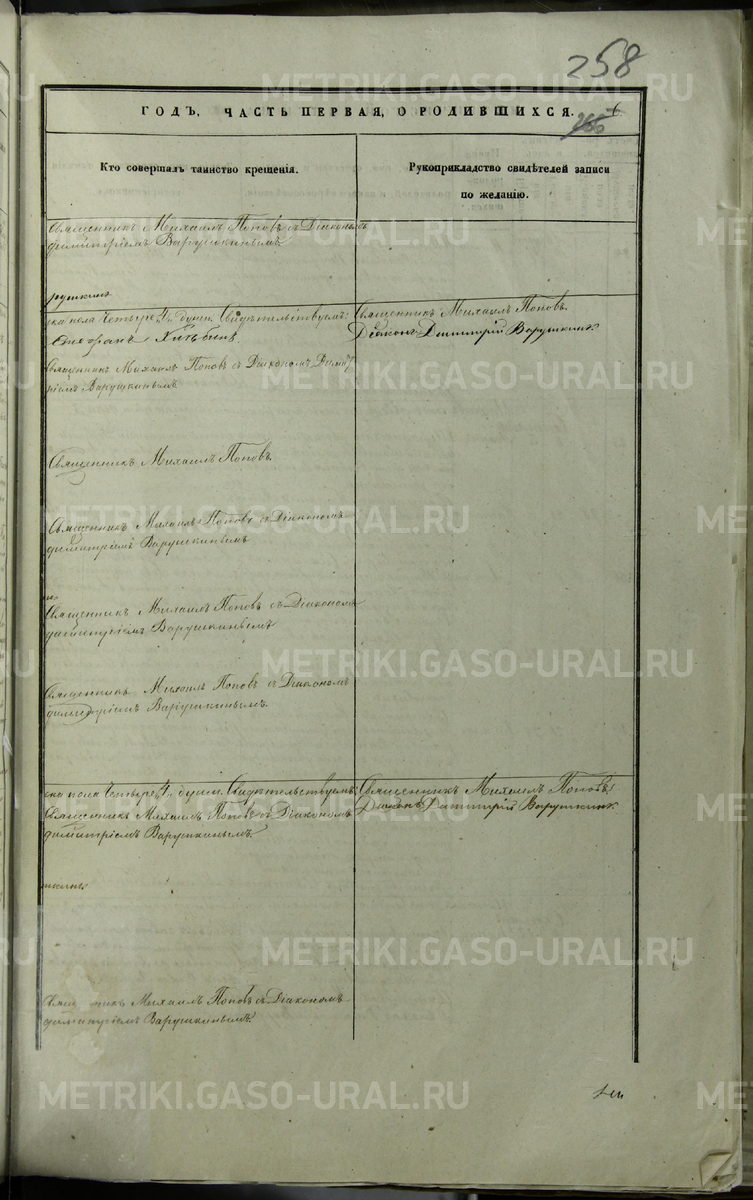 258
ГОДЪ, ЧАСТЬ ПЕРВАЯ, О РОДИВШИХСЯ.
266
Кто совершалъ таинство крещенія.
Рукоприкладство свидѣтелей записи
по желанію.
Священникъ Михаилъ Поповъ съ Діакономъ
Димитріемъ Варушкинымъ
рушкинъ
ска пола Четыре 4, души. Свидѣтельствуемъ:
Священникъ Михаилъ Поповъ.
Діаконъ Димитрій Варушкинъ
Священникъ Михаилъ Поповъ съ Діакономъ Димит
ріемъ Варушкинымъ
Священникъ Михаилъ Поповъ.
Священникъ Михаилъ Поповъ съ Діакономъ
Димитріемъ Варушкинымъ
Священникъ Михаилъ Поповъ съ Діакономъ
Димитріемъ Варушкинымъ
Священникъ Михаилъ Поповъ съ Діакономъ
Димитріемъ Варушкинымъ.
ска пола Четыре 4, души. Свидѣтельствуемъ:
Священникъ Михаилъ Поповъ.
Діаконъ Димитрій Варушкинъ
Священникъ Михаилъ Поповъ съ Діакономъ
Димитріемъ Варушкинымъ.
шкинъ
Священникъ Михаилъ Поповъ съ Діакономъ
Димитріемъ Варушкинымъ.
METRIKI.GASO-URAL.RU